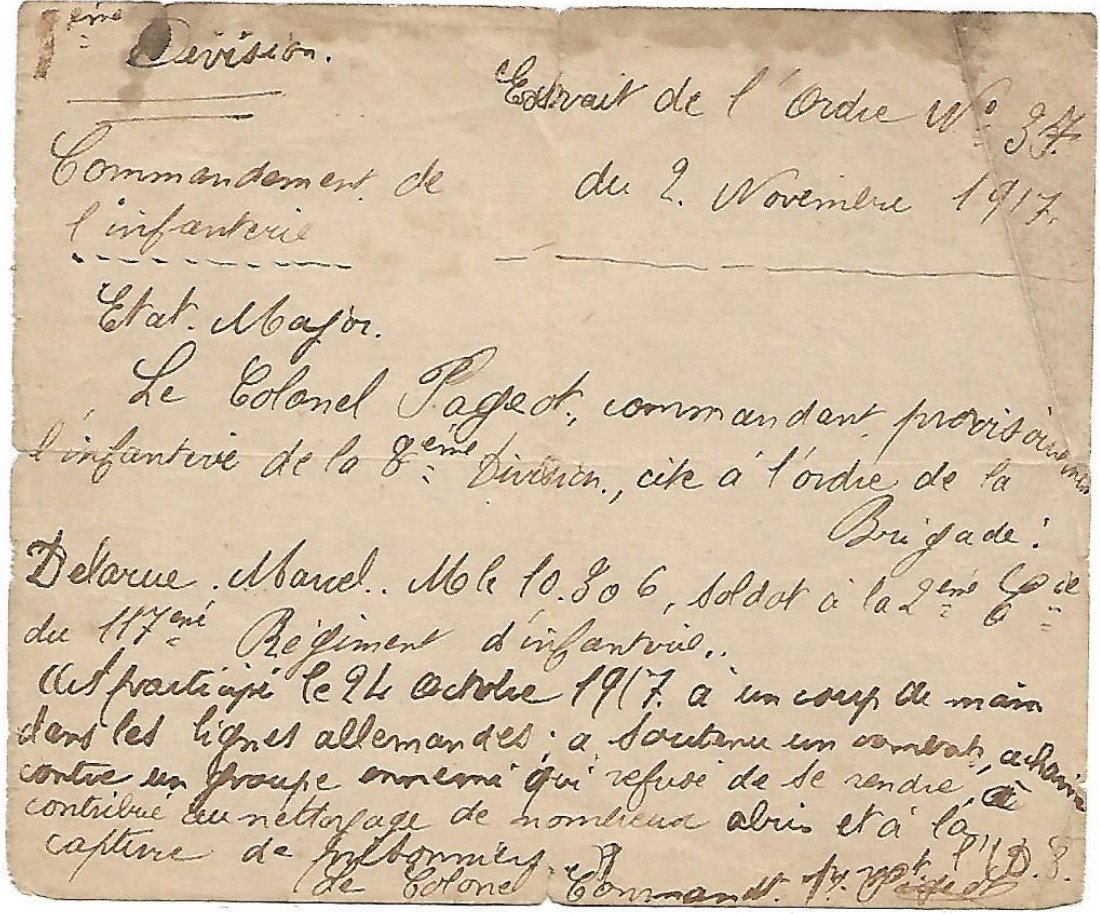 ème
Division.
Extrait de l'Ordre No 37.
du 2. Novembre 1917.
Commandement de
l'infanterie
Etat. Major.
Le Colonel Pageot, commandant provisoirement
l'infanterie de la 8ème Division, cite à l'ordre de la
Brigade :
Delarue. Marcel.. Mle 10.306, soldat à la 2ème Cie
du 117ème Régiment d'infanterie..
participé le 24 octobre 1917. à un coup de main
dans les lignes allemandes ; a soutenu un combat, acharné
contre un groupe ennemi qui refusé de se rendre, a
contribué au nettoyage de nombreux abris et à la
capture de prisonniers
le Colonel Commandt. l'I.D.8.
Pageot